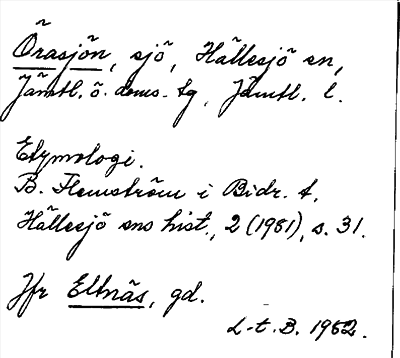 Örasjön, sjö, Hällesjö sn,
Jämtl. ö. doms. tg, Jämtl. l.
Etymologi.
B. Flemström i Bidr. t.
Hällesjö sns hist., 2 (1981), s. 31.
Jfr Eltnäs, gd.
L-t. B. 1982.